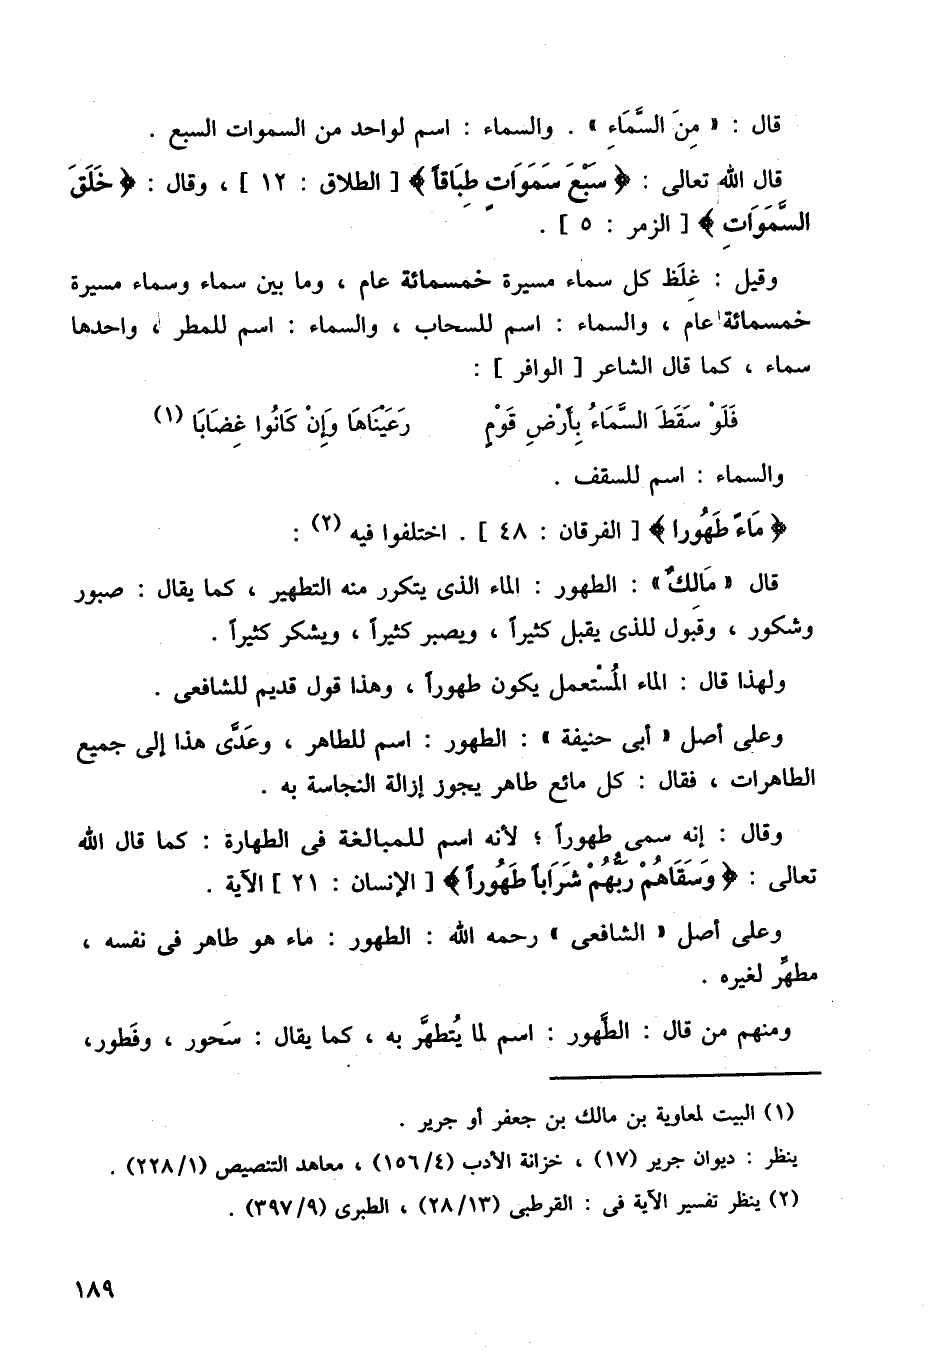 قال : « مِنَ السَّمَاءِ » . والسماء : اسم لواحد من السموات السبع .
قال الله تعالى : ﴿ سَبْعَ سَمَوَاتٍ طِبَاقاً ﴾ [ الطلاق : ١٢ ] ، وقال : ﴿ خَلَقَ
السَّمَوَاتِ ﴾ [ الزمر : ٥ ] .
وقيل : غِلَظ كل سماء مسيرة خمسمائة عام ، وما بين سماء وسماء مسيرة
خمسمائة عام ، والسماء : اسم للسحاب ، والسماء : اسم للمطر ، واحدها
سماء ، كما قال الشاعر [ الوافر ] :
فَلَوْ سَقَطَ السَّمَاءُ بِأَرْضِ قَوْمٍ رَعَيْنَاهَا وَإِنْ كَانُوا غِضَابَا (١)
والسماء : اسم للسقف .
﴿ مَاءً طَهُورا ﴾ [ الفرقان : ٤٨ ] . اختلفوا فيه (٢) :
قال « مَالِكٌ » : الطهور : الماء الذى يتكرر منه التطهير ، كما يقال : صبور
وشكور ، وقبول للذى يقبل كثيراً ، ويصبر كثيراً ، ويشكر كثيراً .
ولهذا قال : الماء المُسْتعمل يكون طهوراً ، وهذا قول قديم للشافعى .
وعلى أصل « أبى حنيفة » : الطهور : اسم للطاهر ، وعَدَّى هذا إلى جميع
الطاهرات ، فقال : كل مائع طاهر يجوز إزالة النجاسة به .
وقال : إنه سمى طهوراً ؛ لأنه اسم للمبالغة فى الطهارة : كما قال الله
تعالى : ﴿ وَسَقَاهُمْ رَبُّهُمْ شَرَاباً طَهُوراً ﴾ [ الإنسان : ٢١ ] الآية .
وعلى أصل « الشافعى » رحمه الله : الطهور : ماء هو طاهر فى نفسه ،
مطهِّر لغيره .
ومنهم من قال : الطَّهور : اسم لما يُتطهَّر به ، كما يقال : سَحور ، وفَطور،
(١) البيت لمعاوية بن مالك بن جعفر أو جرير .
ينظر : ديوان جرير (١٧) ، خزانة الأدب (١٥٦/٤) ، معاهد التنصيص (٢٢٨/١) .
(٢) ينظر تفسير الآية فى : القرطبى (٢٨/١٣) ، الطبرى (٣٩٧/٩) .
١٨٩